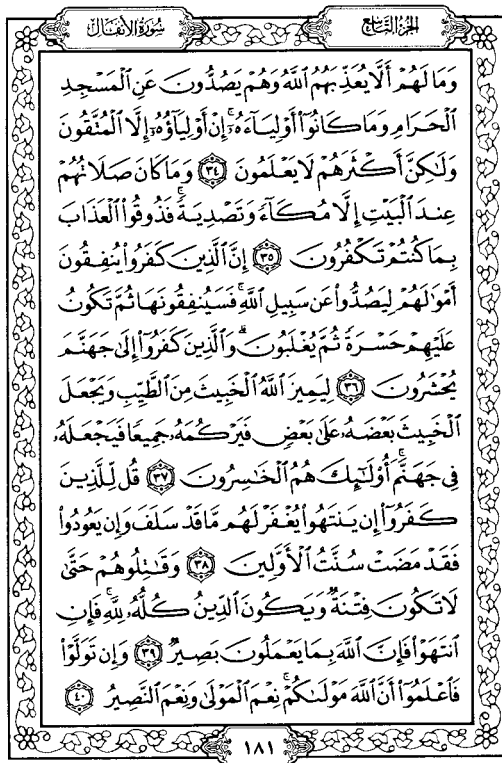 سُورَةُ الأَنفَال
الجُزْءُ التَّاسِع
وَمَا لَهُمْ أَلَّا يُعَذِّبَهُمُ ٱللَّهُ وَهُمْ يَصُدُّونَ عَنِ ٱلْمَسْجِدِ
ٱلْحَرَامِ وَمَا كَانُوٓا۟ أَوْلِيَآءَهُۥٓ ۚ إِنْ أَوْلِيَآؤُهُۥٓ إِلَّا ٱلْمُتَّقُونَ
وَلَٰكِنَّ أَكْثَرَهُمْ لَا يَعْلَمُونَ ٣٤ وَمَا كَانَ صَلَاتُهُمْ
عِندَ ٱلْبَيْتِ إِلَّا مُكَآءً وَتَصْدِيَةً ۚ فَذُوقُوا۟ ٱلْعَذَابَ
بِمَا كُنتُمْ تَكْفُرُونَ ٣٥ إِنَّ ٱلَّذِينَ كَفَرُوا۟ يُنفِقُونَ
أَمْوَٰلَهُمْ لِيَصُدُّوا۟ عَن سَبِيلِ ٱللَّهِ ۚ فَسَيُنفِقُونَهَا ثُمَّ تَكُونُ
عَلَيْهِمْ حَسْرَةً ثُمَّ يُغْلَبُونَ ۗ وَٱلَّذِينَ كَفَرُوٓا۟ إِلَىٰ جَهَنَّمَ
يُحْشَرُونَ ٣٦ لِيَمِيزَ ٱللَّهُ ٱلْخَبِيثَ مِنَ ٱلطَّيِّبِ وَيَجْعَلَ
ٱلْخَبِيثَ بَعْضَهُۥ عَلَىٰ بَعْضٍ فَيَرْكُمَهُۥ جَمِيعًا فَيَجْعَلَهُۥ
فِى جَهَنَّمَ ۚ أُو۟لَٰٓئِكَ هُمُ ٱلْخَٰسِرُونَ ٣٧ قُل لِّلَّذِينَ
كَفَرُوٓا۟ إِن يَنتَهُوا۟ يُغْفَرْ لَهُم مَّا قَدْ سَلَفَ وَإِن يَعُودُوا۟
فَقَدْ مَضَتْ سُنَّتُ ٱلْأَوَّلِينَ ٣٨ وَقَٰتِلُوهُمْ حَتَّىٰ
لَا تَكُونَ فِتْنَةٌ وَيَكُونَ ٱلدِّينُ كُلُّهُۥ لِلَّهِ ۚ فَإِنِ
ٱنتَهَوْا۟ فَإِنَّ ٱللَّهَ بِمَا يَعْمَلُونَ بَصِيرٌ ٣٩ وَإِن تَوَلَّوْا۟
فَٱعْلَمُوٓا۟ أَنَّ ٱللَّهَ مَوْلَىٰكُمْ ۚ نِعْمَ ٱلْمَوْلَىٰ وَنِعْمَ ٱلنَّصِيرُ ٤٠
١٨١